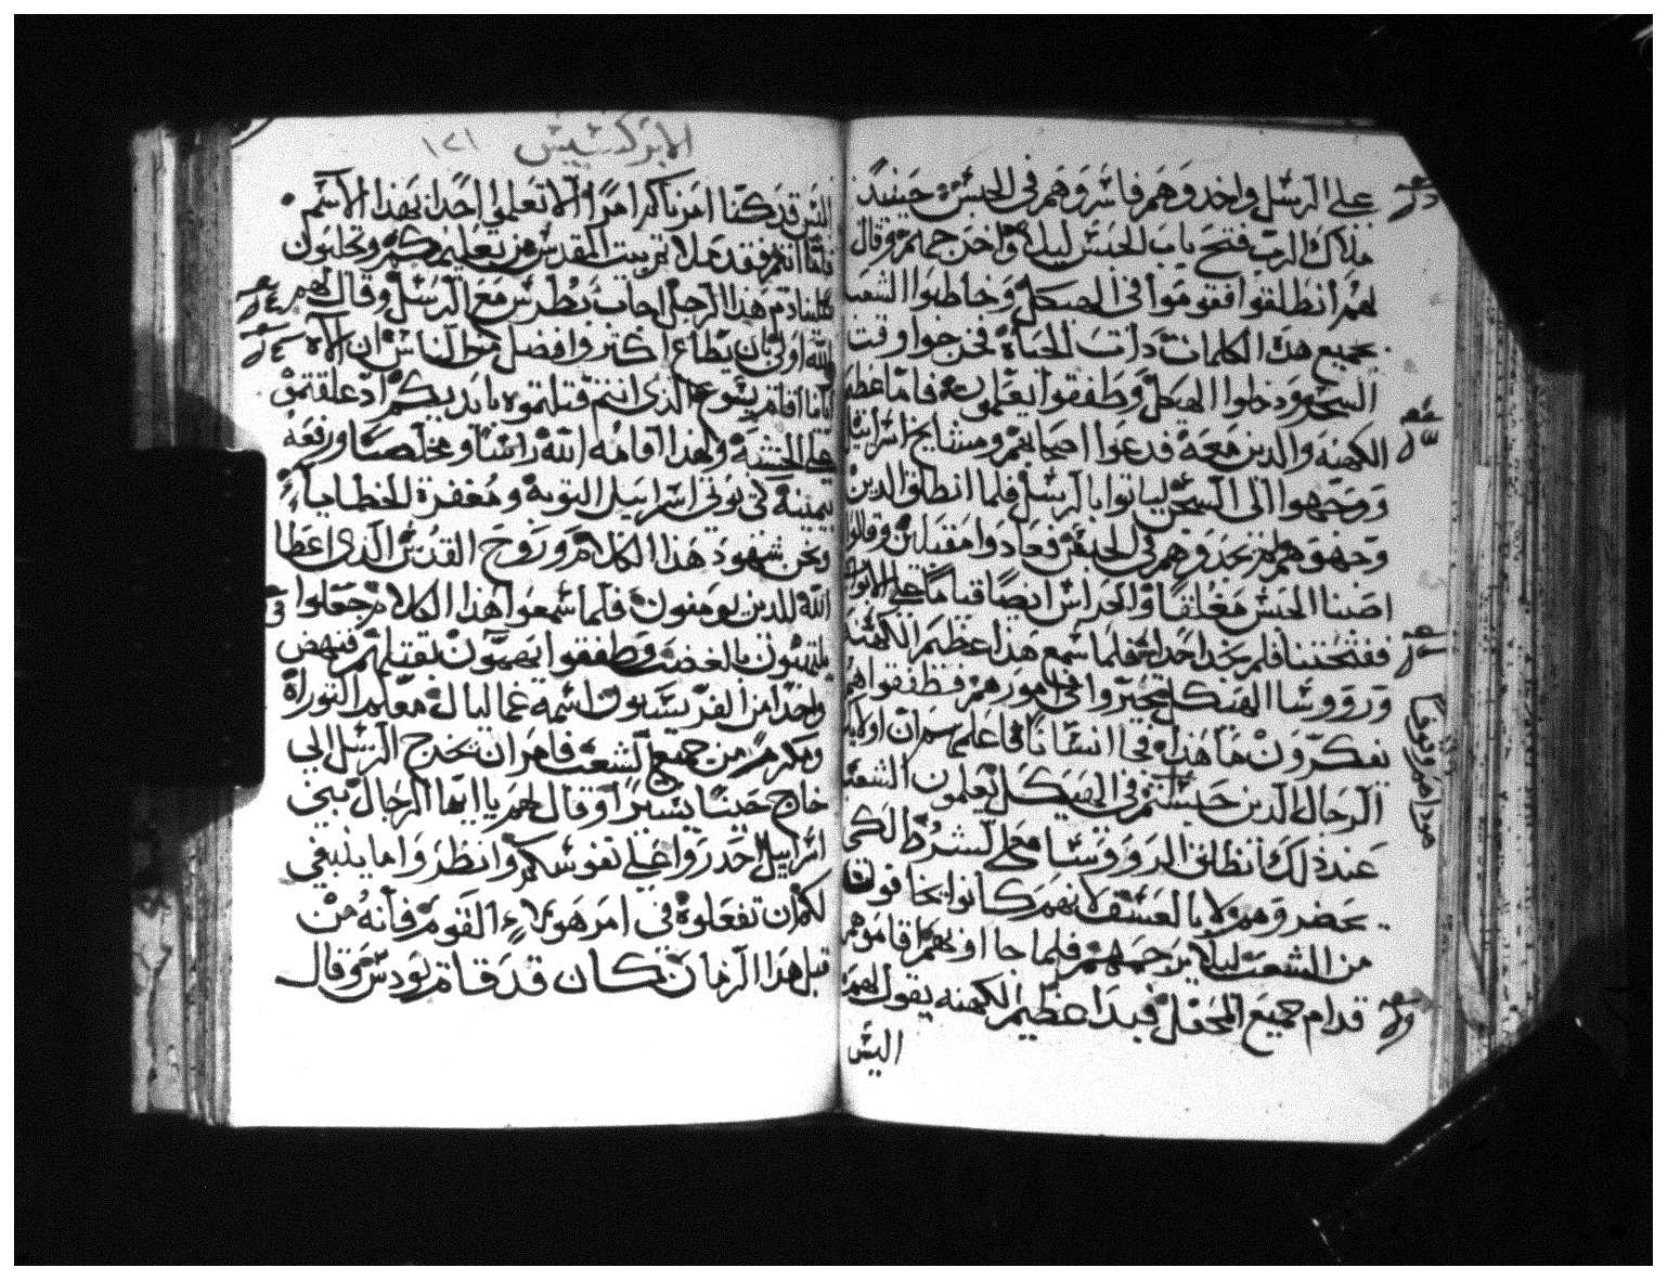 على الرسل واخدوهم فاسروهم فى الحبس حينيدٍ
ملاك الرب فتح باب الحبس ليلا واخرجهم وقال
لهم انطلقوا فقوموا فى الهيكل وخاطبوا الشعب
بجميع هذه الكلمات دات الحياة فخرجوا وقت
السحر ودخلوا الهيكل وطفقوا يعلمون فاما عظيم
الكهنه والدين معه فدعوا اصحابهم ومشايخ اسراييل
ووجهوا الى السجن لياتوا بالرسل فلما انطلق الدين
وجهوهم لم يجدوهم فى الحبس فعادوا مقبلين وقالوا
اصبنا الحبس مغلقا والحراس ايضا قياما على الابواب
ففتحنا فلم نجد احدا فلما سمع هذا عظيم الكهنه
ورووسا الهيكل تحيروا فى امورهم فطفقوا
يفكرون ما هذا فجا انسانا فاعلمهم ان اولايك
الرجال الدين حبستم فى الهيكل يعلمون الشعب
عند ذلك انطلق الروسا مع الشرط لكى
يحضروهم لا بالعسف لانهم كانوا يخافون
من الشعب ليلا يرجمهم فلما جا اوبهم اقاموهم
قدام جميع المحفل فبدا عظيم الكهنه يقول لهم
اليس
الابركسيس ١٧١
اليس قد كنا امرناكم امرًا الا تعلموا احدا بهذا الاسم
فاما انتم فقد ملاتم بيت المقدس من تعليمكم وتجلبون
علينا دم هذا الرجل اجاب بطرس مع الرسل وقال لهم
الله اولى بان يطاع اكثر وافضل من الناس ان الاه
ابانا اقام يسوع الذى انتم قتلتموه بايديكم اد علقتموه
على الخشبه ولهدا اقامه الله راسا ومخلصا ورفعه
بيمينه كى يوتى اسراييل التوبه ومغفرة الخطايا
ونحن شهود هذا الكلام وروح القدس الذى اعطا
الله للدين يومنون فلما سمعوا هذا الكلام جعلوا
يلتهبون بالغضب وطفقوا يهمون بقتلهم فنهض
واحدا من الفريسيون اسمه غماليال معلم التوراة
ومكرم من جميع الشعب فامر ان يخرج الرسل الى
خارج حينا يسيرا وقال لهم يا ايها الرجال بنى
اسراييل احدروا على نفوسكم وانظروا ما ينبغى
لكم ان تفعلوه فى امر هولاء القوم فانه من
قبل هذا الزمان كان قد قام تودس وقال